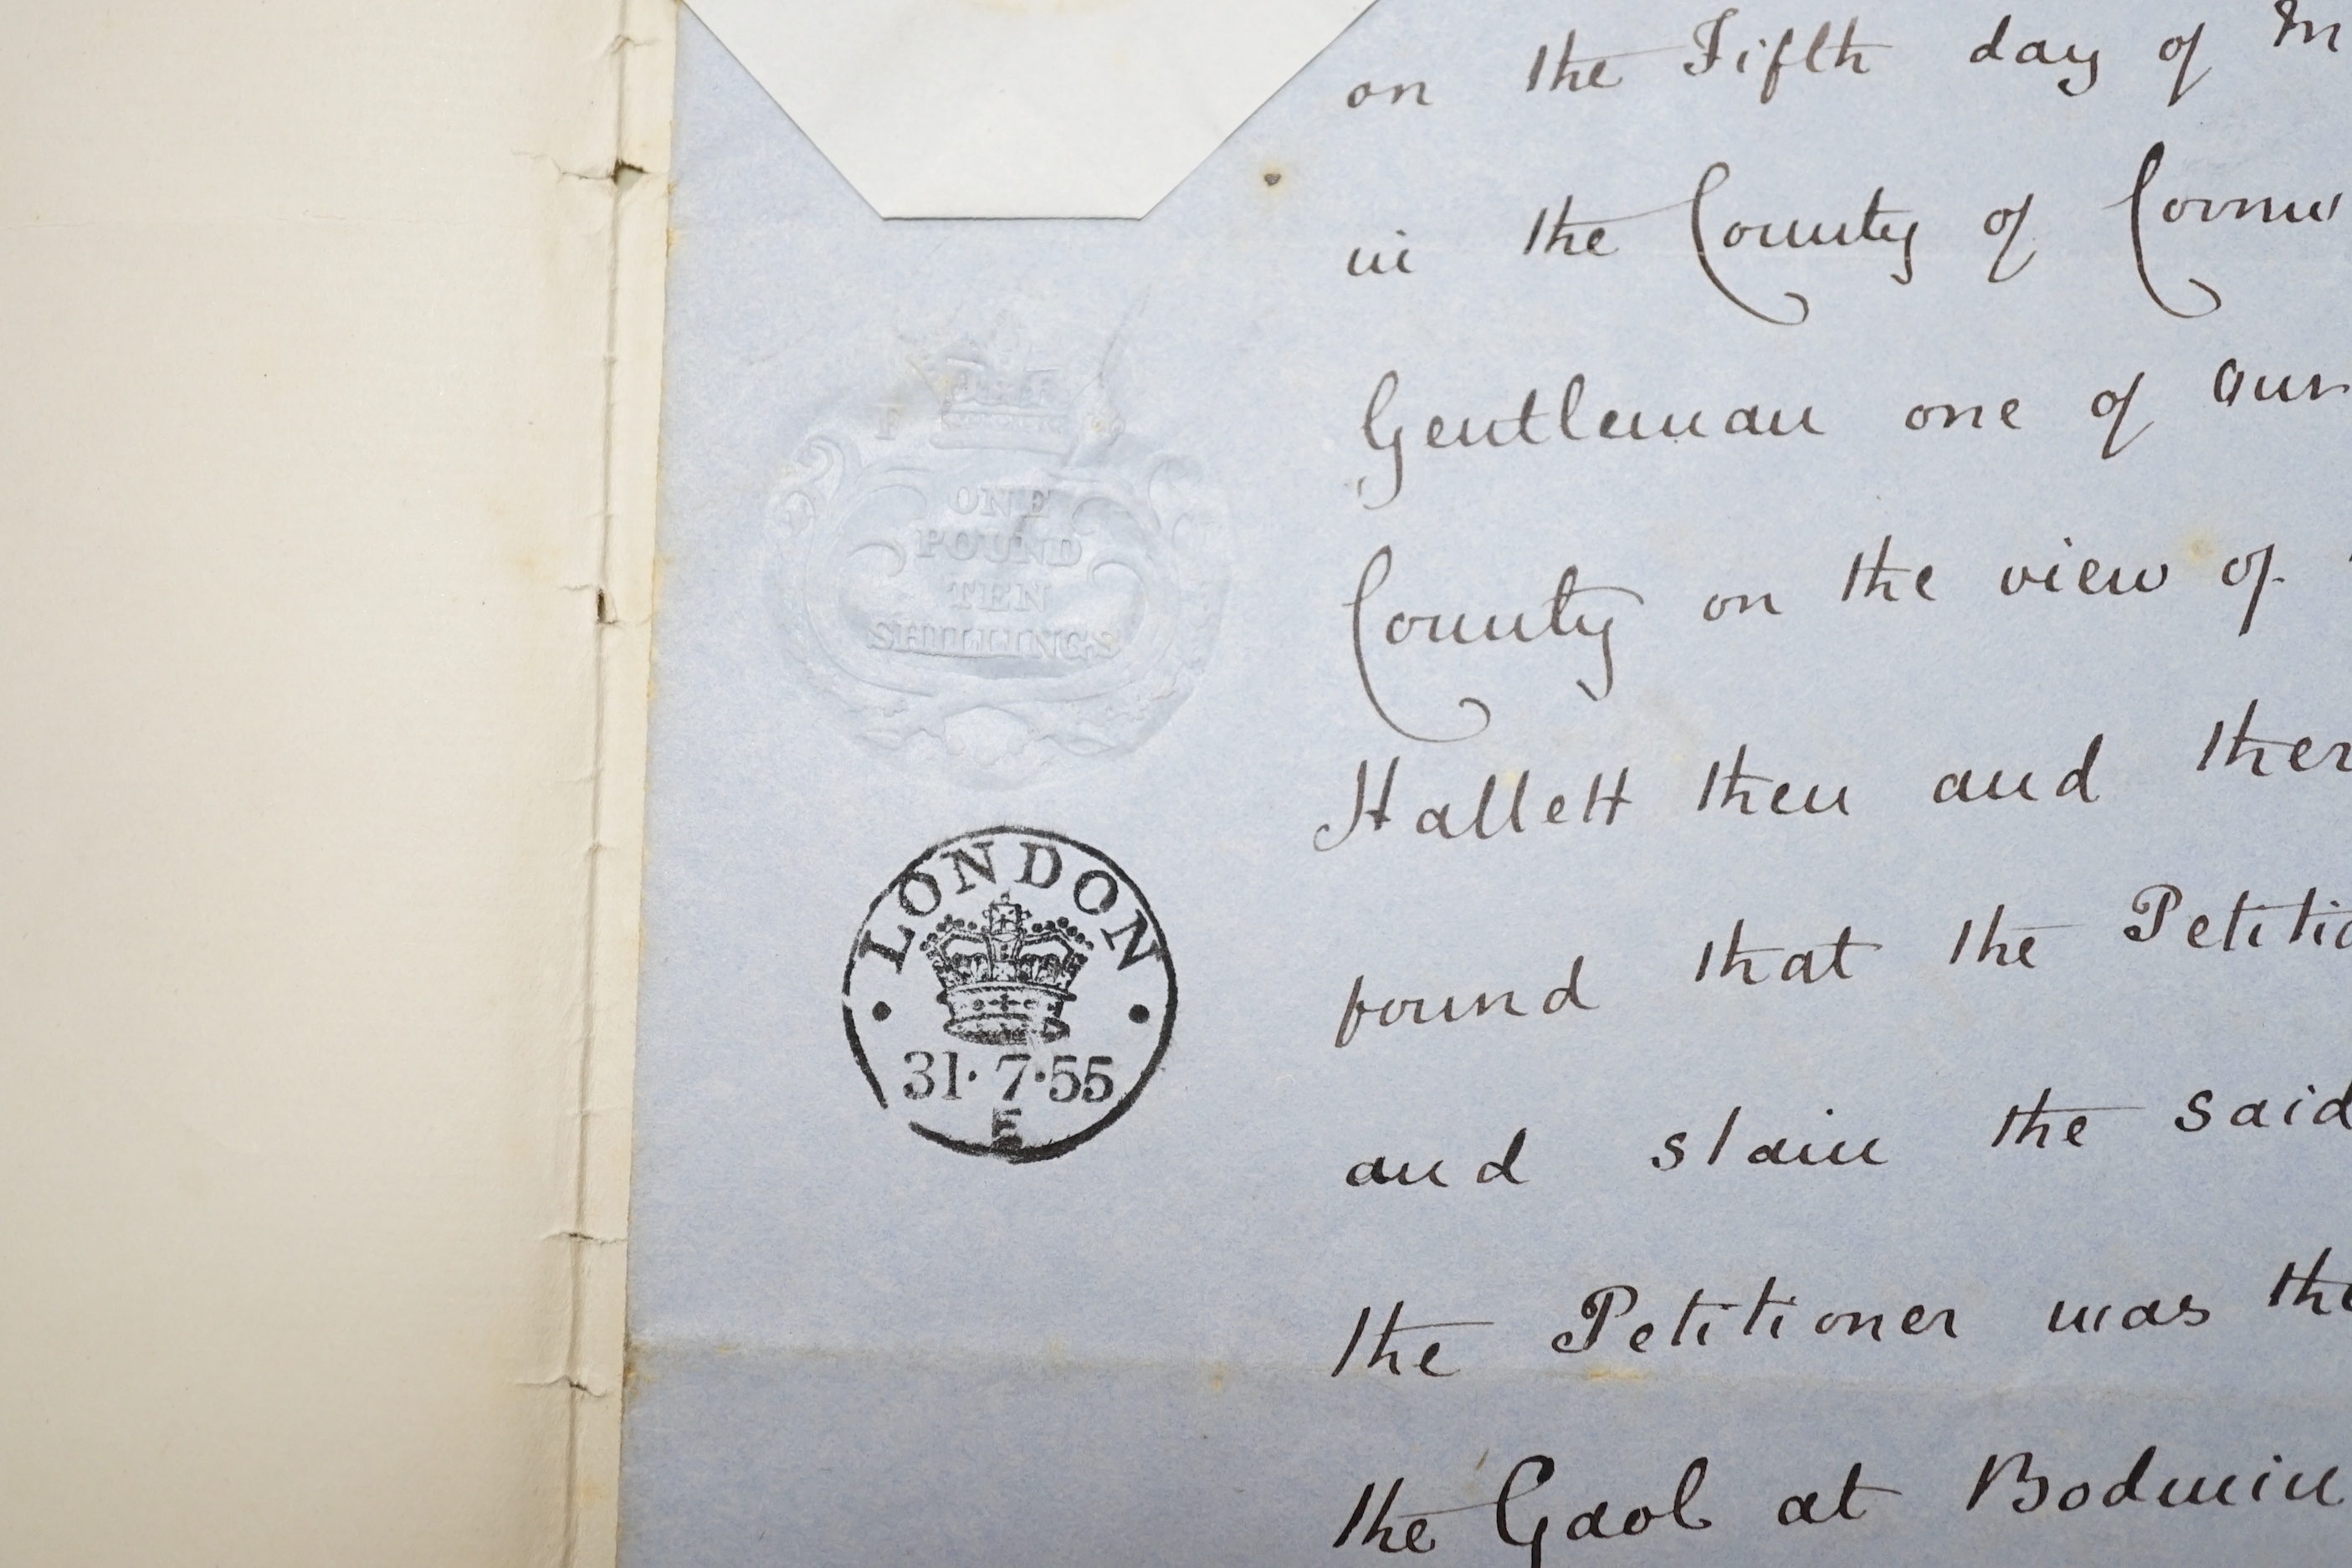 on the Fifth day of M
in the County of Cornw
Gentleman one of Our
County on the view of
Hallett then and ther
found that the Petitio
and slain the said
the Petitioner was the
the Gaol at Bodmin
ONE
POUND
TEN
SHILLINGS
LONDON
31·7·55
E